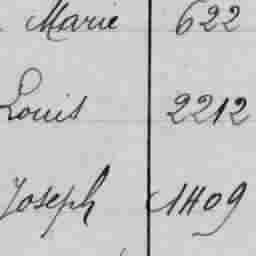 Marie 622
Louis 2212
Joseph 1409